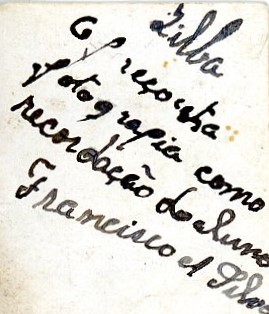 Silva
O/ preçosta
fotografia como
recordação do aluno
Francisco el Silva